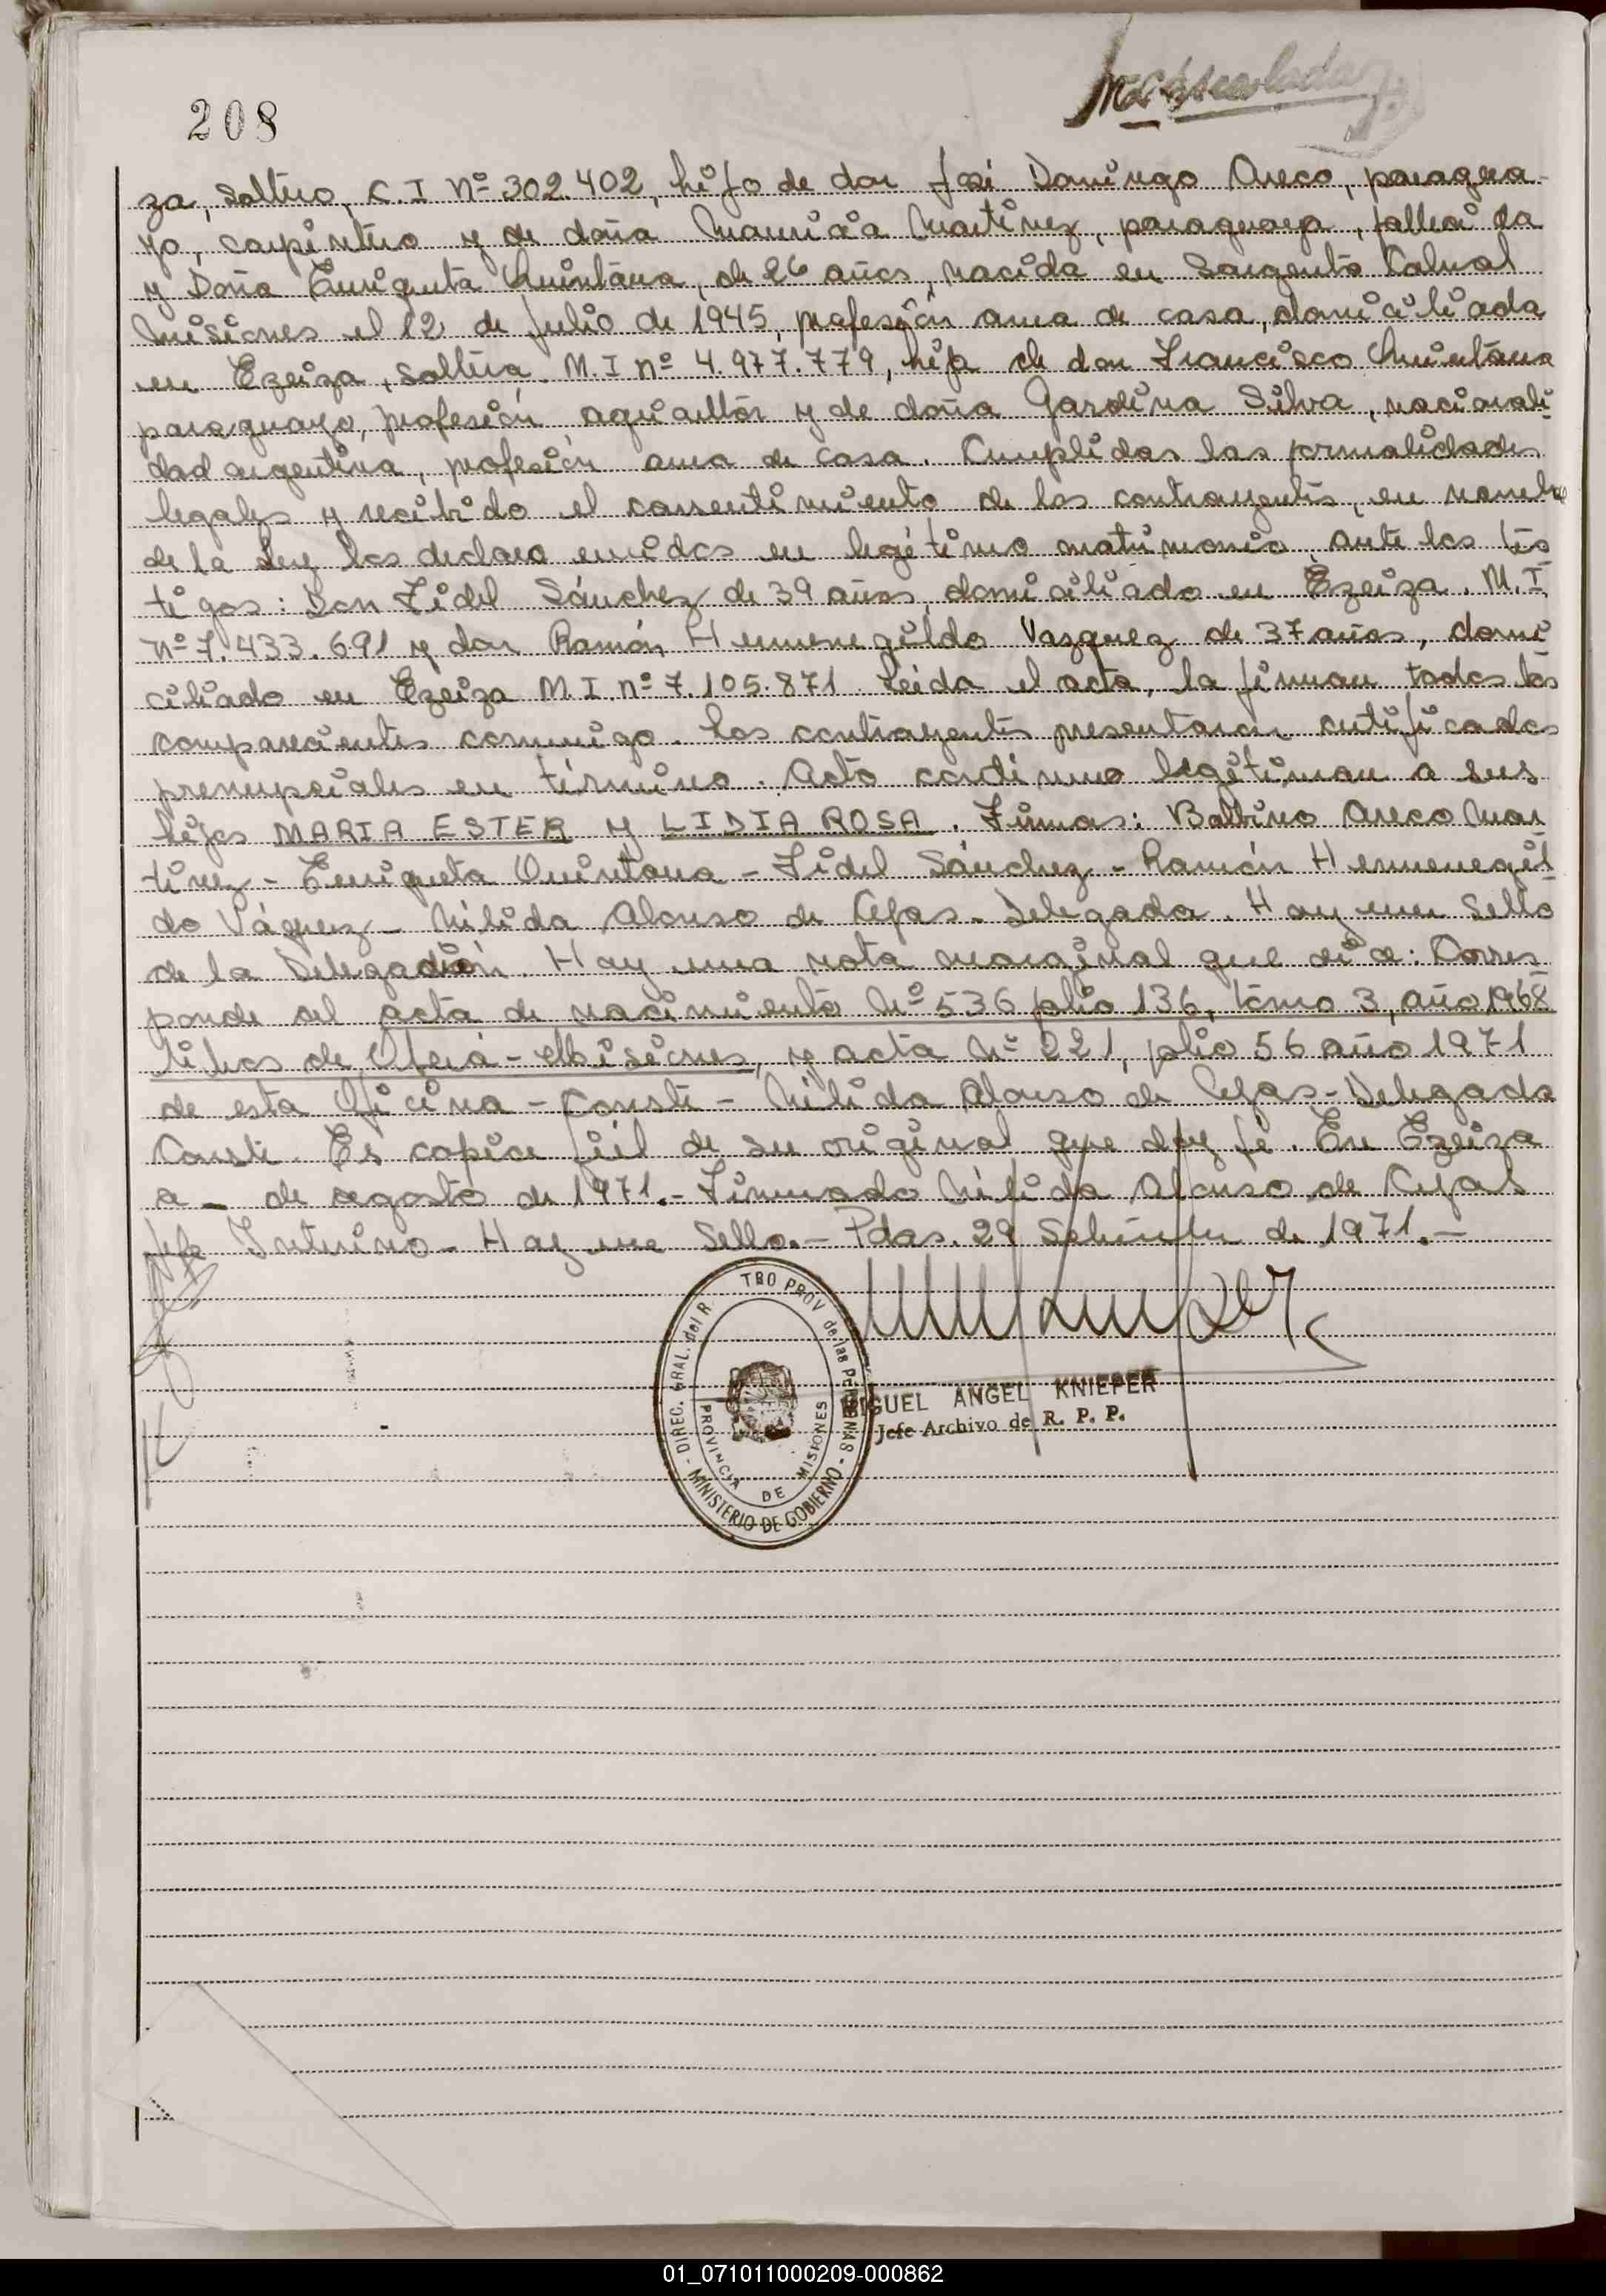 208
za, soltero, C.I Nº 302.402, hijo de don José Domingo Areco, paragua-
yo, carpintero y de doña Mauricia Martinez, paraguaya, fallecida
y Doña Enriqueta Quintana, de 26 años, nacida en Sargento Cabral
Misiones el 12 de Julio de 1945, profesión ama de casa, domiciliada
en Ezeiza, soltera. M.I nº 4.977.779, hija de don Francisco Quintana
paraguayo, profesión agricultor y de doña Gardina Silva, nacionali-
dad argentina, profesión ama de casa. Cumplidas las formalidades
legales y recibido el consentimiento de los contrayentes, en nombre
de la Ley los declaro unidos en legítimo matrimonio, ante los tes-
tigos: Don Fidel Sánchez de 39 años, domiciliado en Ezeiza. M.I.
nº 7.433.691 y don Ramón Hermenegildo Vazquez de 37 años, domi-
ciliado en Ezeiza M.I. nº 7.105.871. Leída el acta, la firman todos los
comparecientes conmigo. Los contrayentes presentaron certificados
prenupciales en término. Acto contínuo legitiman a sus
hijas MARIA ESTER y LIDIA ROSA. Firmas: Balbino Areco Mar-
tinez - Enriqueta Quintana - Fidel Sánchez - Ramón Hermenegil-
do Váquez - Nélida Alonso de Cejas - Delegada. Hay un Sello
de la Delegación. Hay una nota marginal que dice: Corres-
ponde al acta de nacimiento Nº 536 folio 136, tomo 3, año 1968
libros de Oberá - Misiones, y acta Nº 221, folio 56 año 1971
de esta Oficina - Conste - Nélida Alonso de Cejas - Delegada
Conste. Es copia fiel de su original que doy fé. En Ezeiza
a - de agosto de 1971.- Firmado Nélida Alonso de Cejas
Jefe Interino - Hay un Sello.- Pdas. 29 Setiembre de 1971.-
DIREC. GRAL. del R. TRO PROV de las PERSONAS
MINISTERIO DE GOBIERNO
PROVINCIA DE MISIONES
MIGUEL ANGEL KNIEPER
Jefe Archivo de R. P. P.
01_071011000209-000862